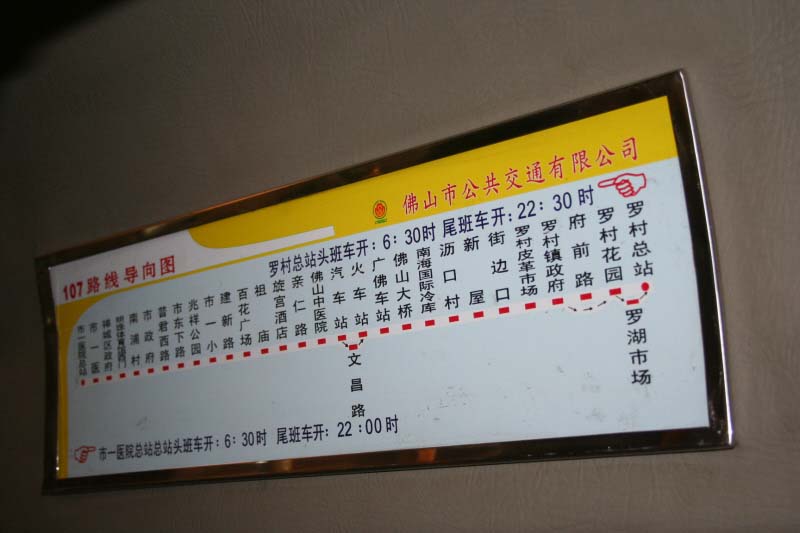 佛山市公共交通有限公司
107路线导向图
罗村总站头班车开：6：30时 尾班车开：22：30时
市一医院总站
市一医
禅城区政府
明珠体育馆西门
南浦村
市政府
普君西路
市东下路
兆祥公园
市一小
建新路
百花广场
祖庙
旋宫酒店
亲仁路
佛山中医院
汽车站
火车站
广佛车站
佛山大桥
南海国际冷库
沥口村
新屋
街边口
罗村皮革市场
罗村镇政府
府前路
罗村花园
罗村总站
文昌路
罗湖市场
市一医院总站总站头班车开：6：30时 尾班车开：22：00时